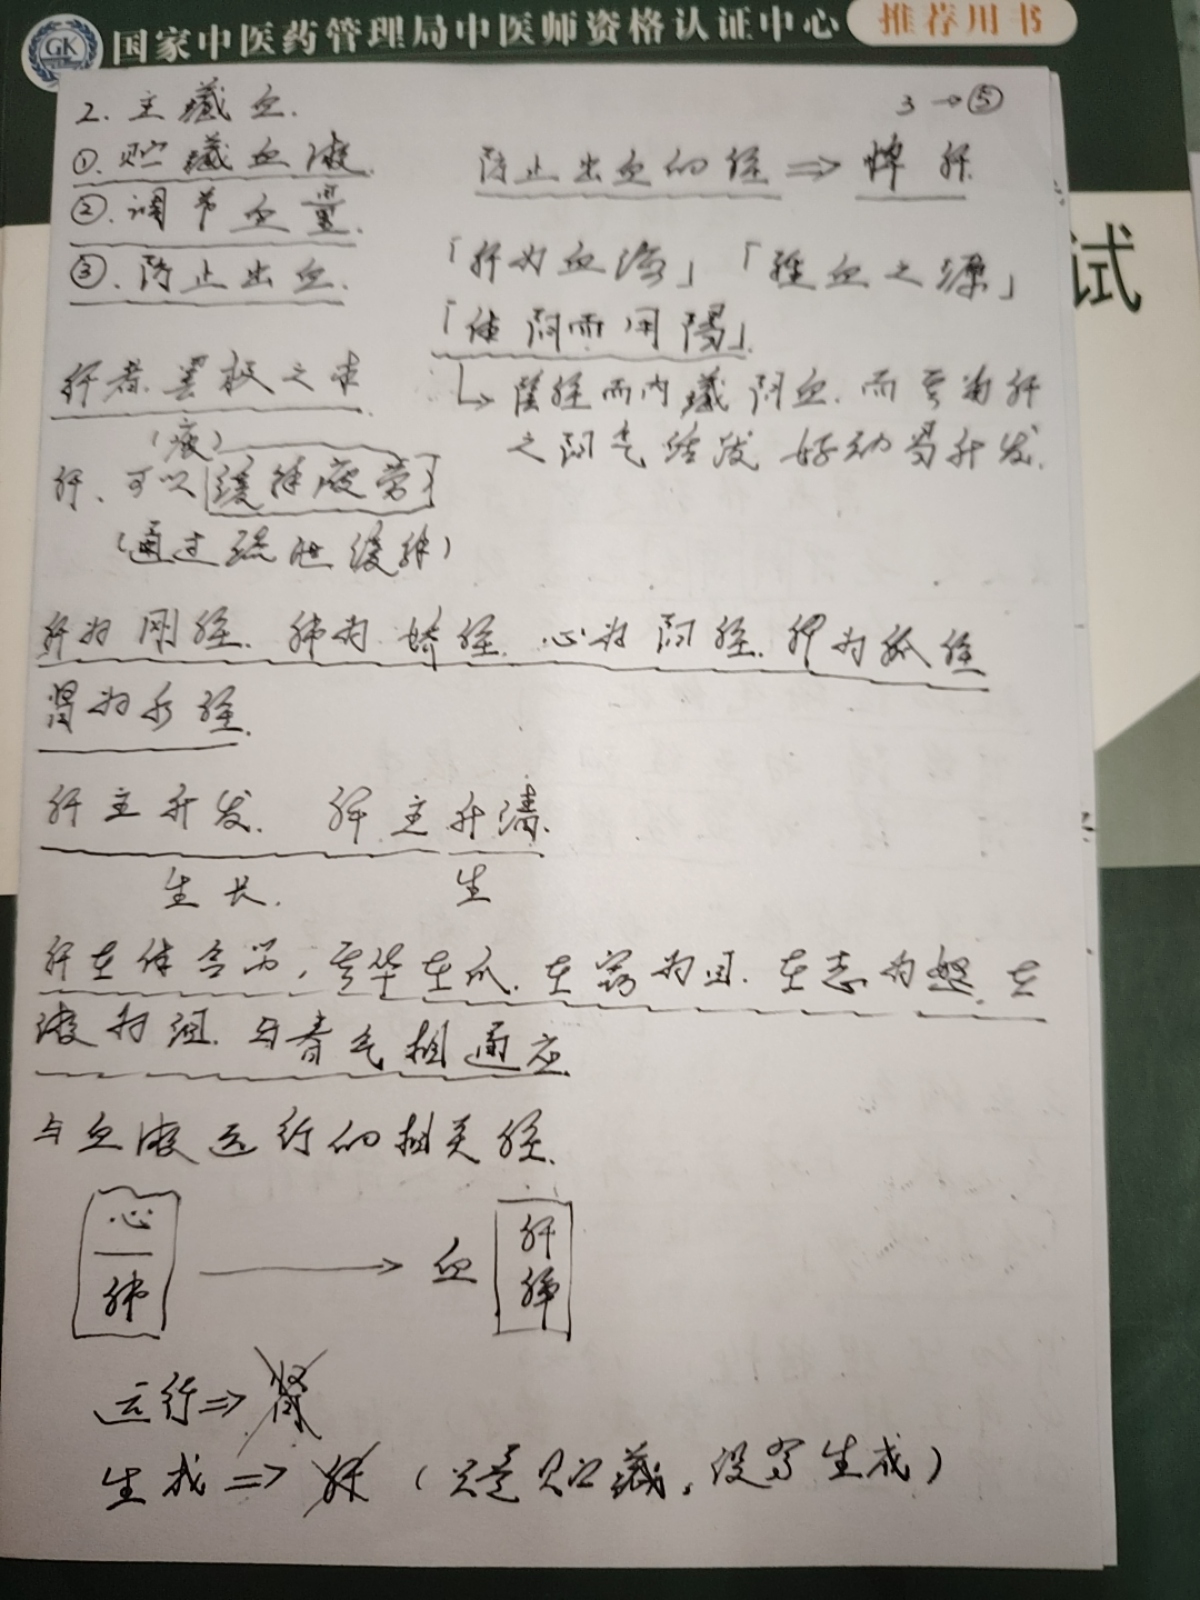 GK 国家中医药管理局中医师资格认证中心 推荐用书
试
3→⑤
2. 主藏血.
①. 贮藏血液.
②. 调节血量.
③. 防止出血.
防止出血的经 ⇒ 脾肝
「肝为血海」「经血之源」
「体阴而用阳」
↳ 属经而内藏阴血.而主为肝
之阴气 好动 易升发.
肝者.罢极之本
(疲)
肝、可以缓解疲劳
(通过疏泄缓解)
肝为刚经. 肺为娇经. 心为阴经. 脾为孤经
肾为水经.
肝主升发. 肝主升清.
生长. 生
肝在体合筋, 其华在爪. 在窍为目. 在志为怒. 在
液为泪. 与春气相通应.
与血液运行的相关经.
心
肺
→ 血
肝
脾
运行⇒肾
生成⇒肝 (只是贮藏, 没写生成)